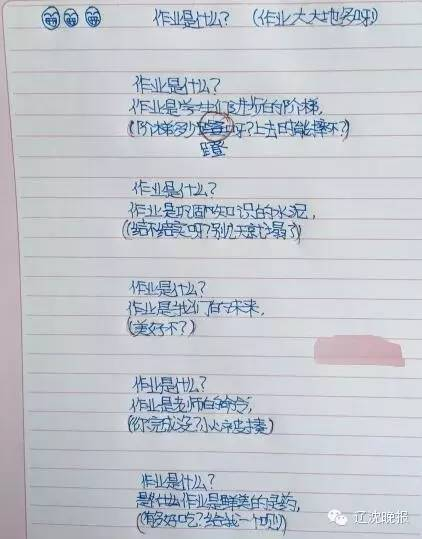 作业是什么? (作业大大地多呀!)
作业是什么?
作业是学生们进步的阶梯,
(阶梯多少蹬呀?上去时能摔不?)
蹬
作业是什么?
作业是巩固知识的水泥,
(结不结实呀?别几天就塌了)
作业是什么?
作业是我们的未来,
(美好不?)
作业是什么?
作业是老师的命令,
(你完成没?小心被揍)
作业是什么?
作业是的灵药,
(有多好吃?给我一个呗!)
辽沈晚报